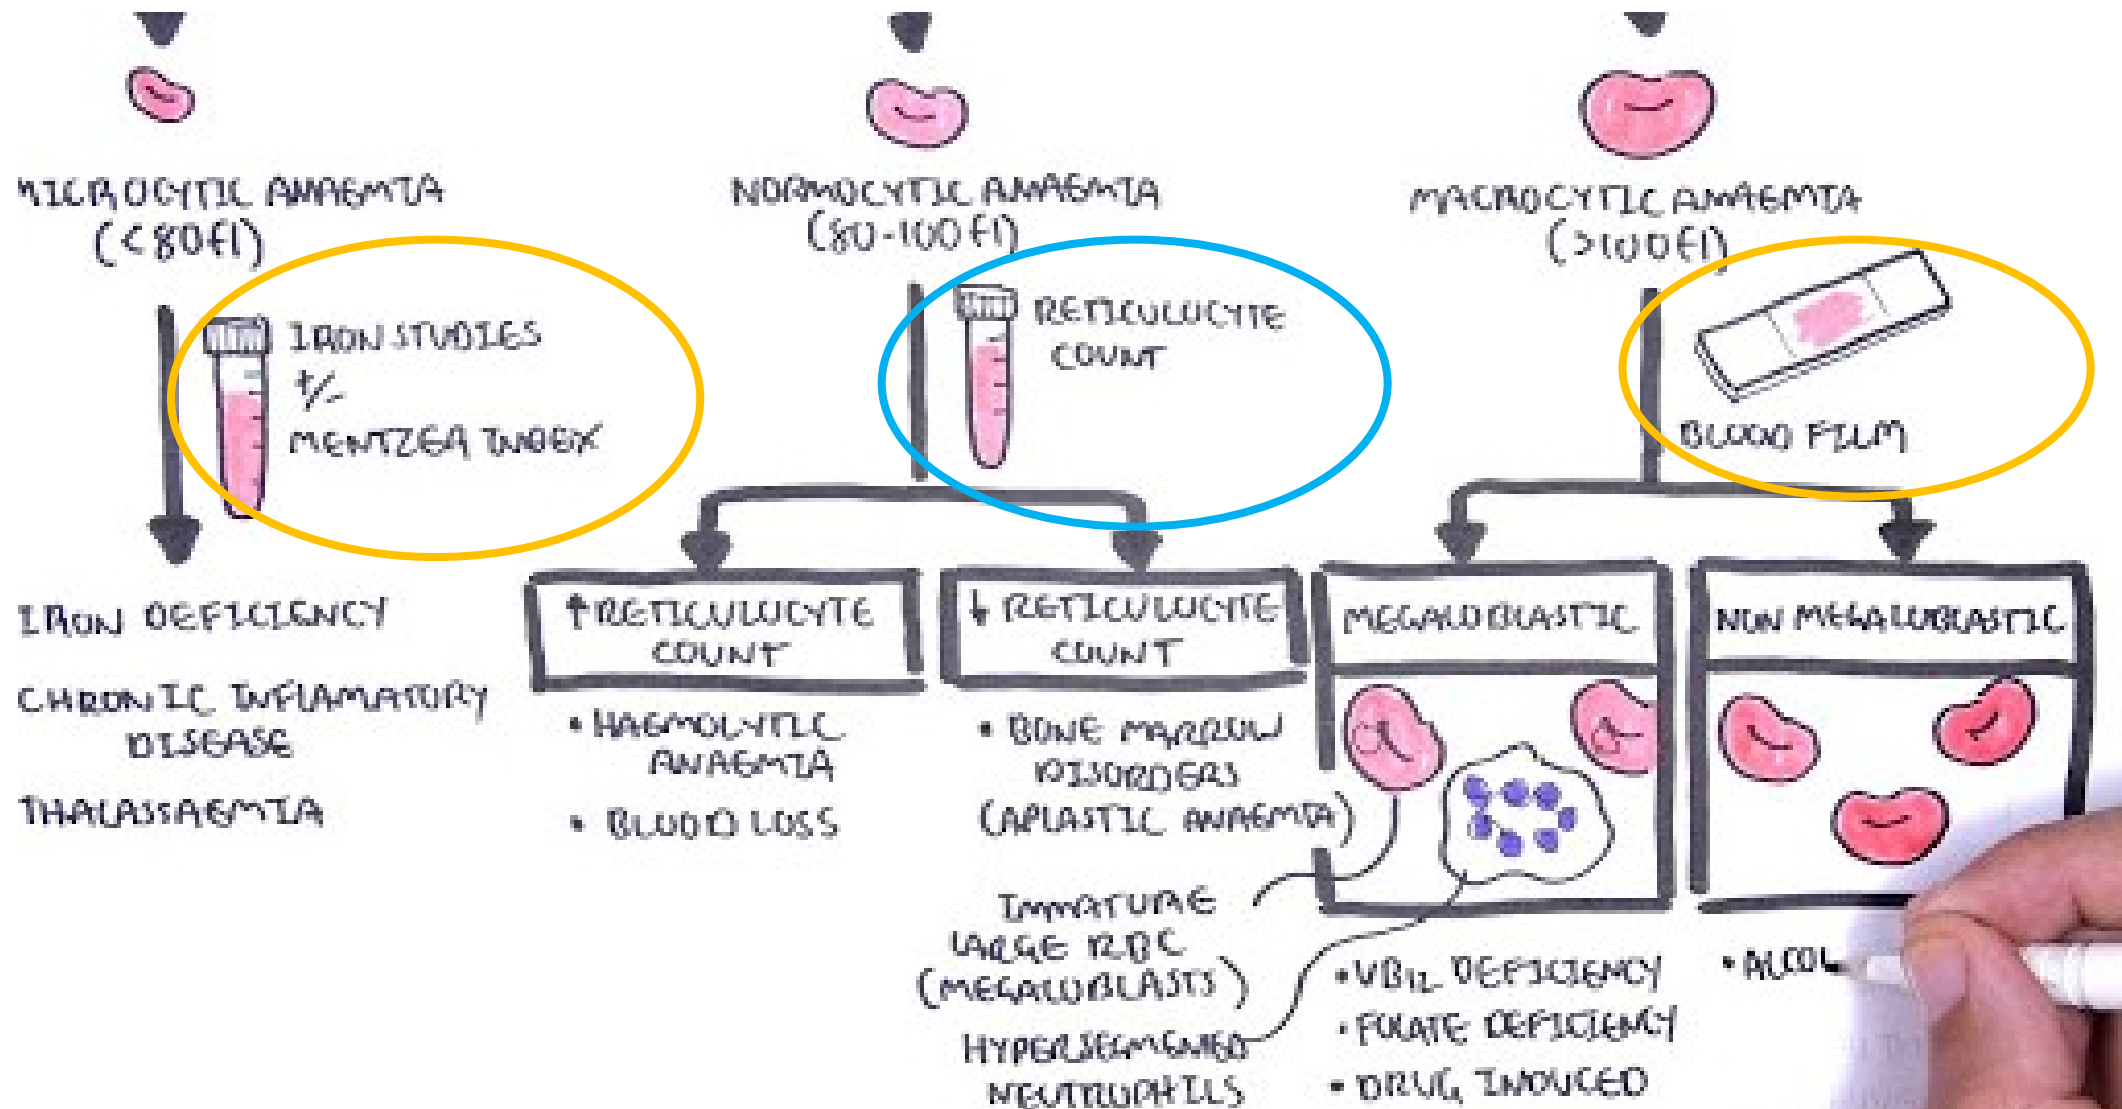 MICROCYTIC ANAEMIA
(<80fl)
IRON STUDIES
+/-
MENTZER INDEX
IRON DEFICIENCY
CHRONIC INFLAMATORY
DISEASE
THALASSAEMIA
NORMOCYTIC ANAEMIA
(80-100fl)
RETICULOCYTE
COUNT
↑ RETICULOCYTE
COUNT
• HAEMOLYTIC
ANAEMIA
• BLOOD LOSS
↓ RETICULOCYTE
COUNT
• BONE MARROW
DISORDERS
(APLASTIC ANAEMIA)
MACROCYTIC ANAEMIA
(>100fl)
BLOOD FILM
MEGALOBLASTIC
IMMATURE
LARGE RBC
(MEGALOBLASTS)
HYPERSEGMENED
NEUTROPHILS
• VB12 DEFICIENCY
• FOLATE DEFICIENCY
• DRUG INDUCED
NON MEGALOBLASTIC